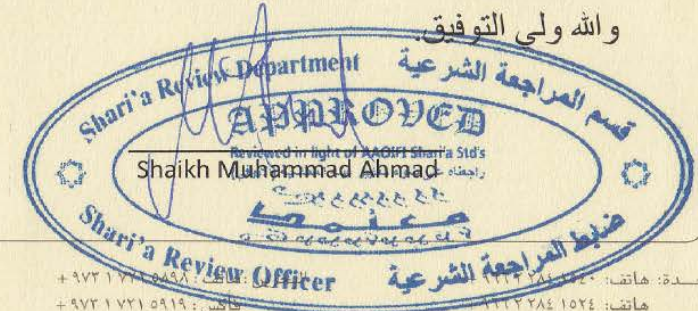 والله ولي التوفيق.
Shari'a Review Department
قسم المراجعة الشرعية
APPROVED
Reviewed in light of AAOIFI Shari'a Std's
Shaikh Muhammad Ahmad
معتمد
Shari'a Review Officer
ضابط المراجعة الشرعية
هاتف:
+ ٩٧٣ ١ ٧٢١ ٥٩١٩ : فاكس